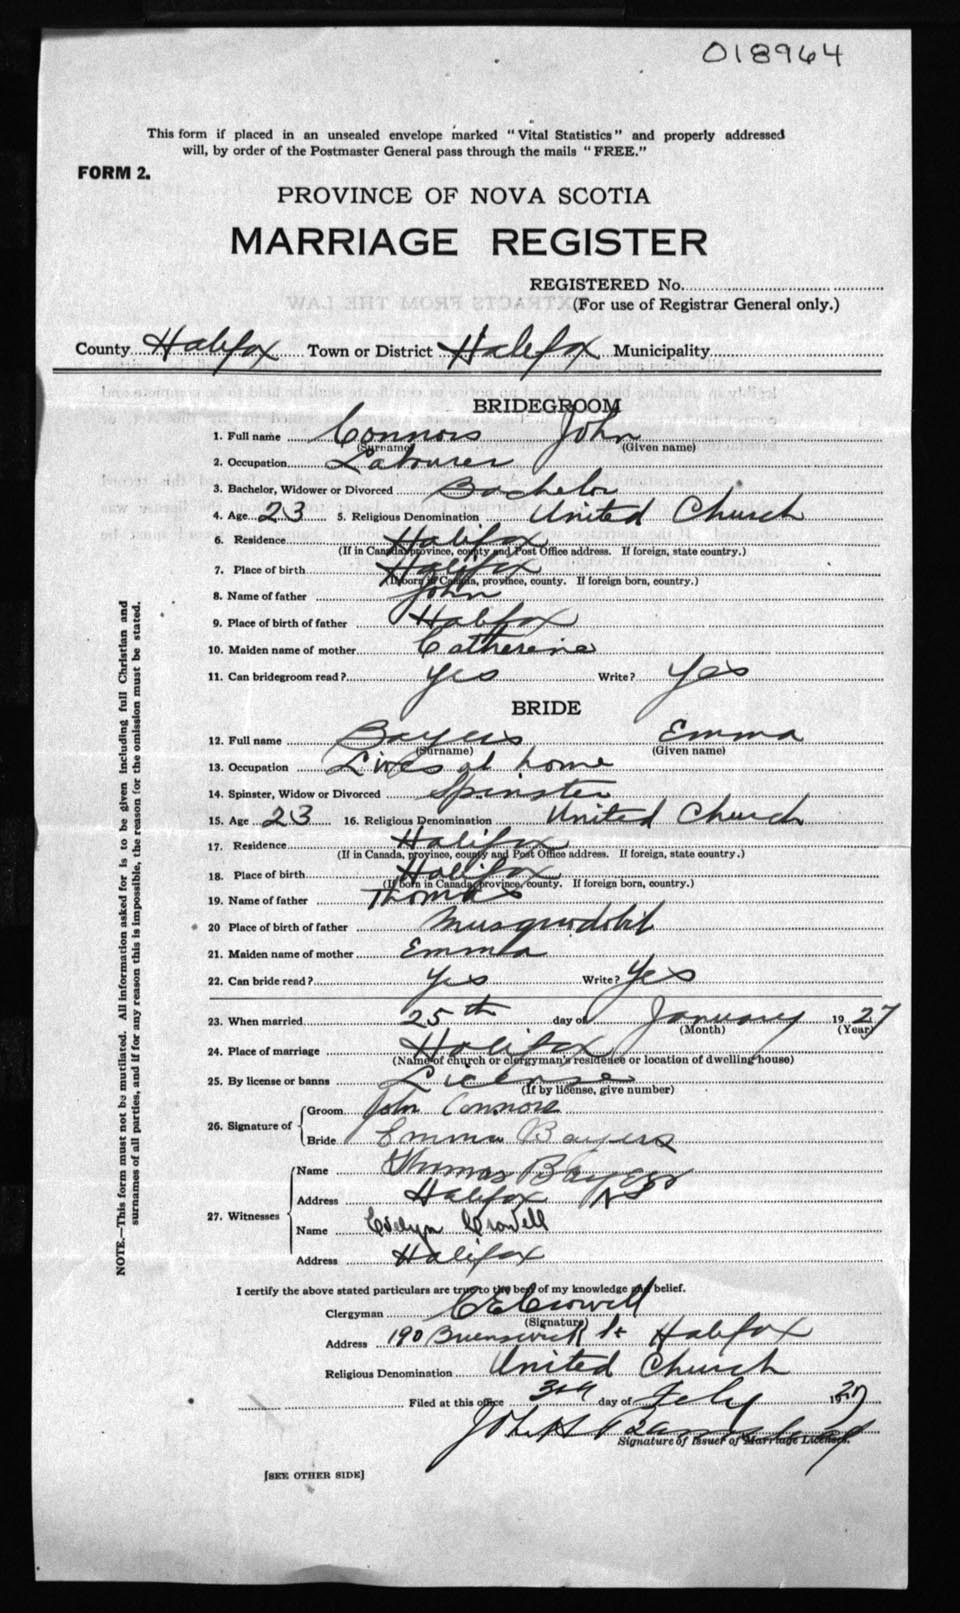 018964
This form if placed in an unsealed envelope marked "Vital Statistics" and properly addressed
will, by order of the Postmaster General pass through the mails "FREE."
FORM 2.
PROVINCE OF NOVA SCOTIA
MARRIAGE REGISTER
REGISTERED No.
(For use of Registrar General only.)
County Halifax Town or District Halifax Municipality
BRIDEGROOM
1. Full name Connors John
(Surname) (Given name)
2. Occupation Labourer
3. Bachelor, Widower or Divorced Bachelor
4. Age 23 5. Religious Denomination United Church
6. Residence Halifax
(If in Canada, province, county and Post Office address. If foreign, state country.)
7. Place of birth Halifax
(If born in Canada, province, county. If foreign born, country.)
8. Name of father John
9. Place of birth of father Halifax
10. Maiden name of mother Catherine
11. Can bridegroom read? Yes Write? Yes
BRIDE
12. Full name Bayers Emma
(Surname) (Given name)
13. Occupation Lives at home
14. Spinster, Widow or Divorced Spinster
15. Age 23 16. Religious Denomination United Church
17. Residence Halifax
(If in Canada, province, county and Post Office address. If foreign, state country.)
18. Place of birth Halifax
(If born in Canada, province, county. If foreign born, country.)
19. Name of father Thomas
20 Place of birth of father Musquodobit
21. Maiden name of mother Emma
22. Can bride read? Yes Write? Yes
23. When married 25th day of January 1927
(Month) (Year)
24. Place of marriage Halifax
(Name of church or clergyman's residence or location of dwelling house)
25. By license or banns License
(If by license, give number)
26. Signature of Groom John Connors
Bride Emma Bayers
27. Witnesses Name Thomas Bayers
Address Halifax NS
Name Evelyn Crowell
Address Halifax
I certify the above stated particulars are true to the best of my knowledge and belief.
Clergyman C E Crowell
(Signature)
Address 190 Brunswick St Halifax
Religious Denomination United Church
Filed at this office 3rd day of Feby 1927
John
Signature of Issuer of Marriage Licenses.
[SEE OTHER SIDE]
NOTE.—This form must not be mutilated. All information asked for is to be given including full Christian and
surnames of all parties, and if for any reason this is impossible, the reason for the omission must be stated.